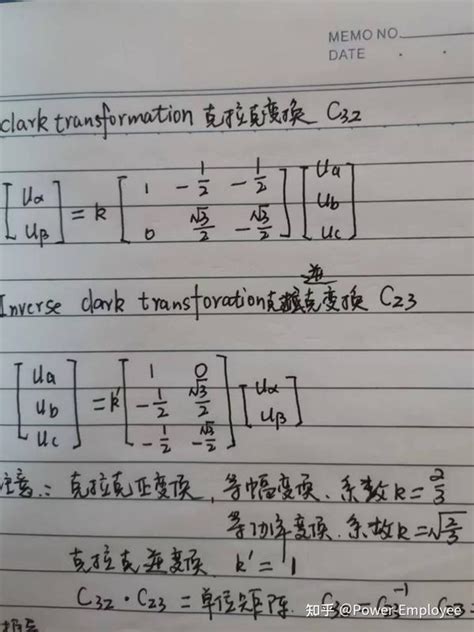 MEMO NO.
DATE . .
clark transformation 克拉克变换 C32
[uα uβ] = k [1 -1/2 -1/2; 0 √3/2 -√3/2] [ua ub uc]
逆
Inverse clark transforation 克拉克变换 C23
[ua ub uc] = k' [1 0; -1/2 √3/2; -1/2 -√3/2] [uα uβ]
注意: 克拉克正变换, 等幅变换. 系数k=2/3
等功率变换. 系数k=√2/3
克拉克逆变换 k'=1
C32 · C23 = 单位矩阵
知乎 @Power Employee